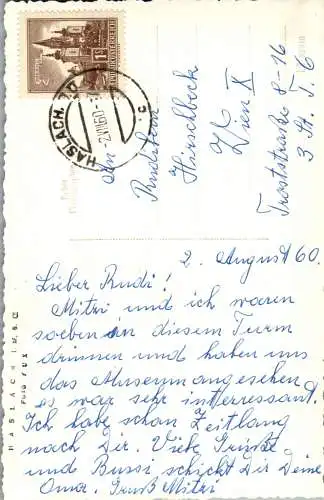 HASLACH
-2.VIII.60
c
An
Rudibem
Hirschbeck
Wien X
Troststraße 8-16
3 St. T. 6
2. August 60.
Lieber Rudi!
Mitzi und ich waren
soeben in diesem Turm
drinnen und haben uns
das Museum angesehen
es war sehr interressant.
Ich habe schon Zeitlang
nach Dir. Viele Grüße
und Bussi schickt Dir Deine
Oma. Gruß Mitzi
HASLACH
Foto FUX